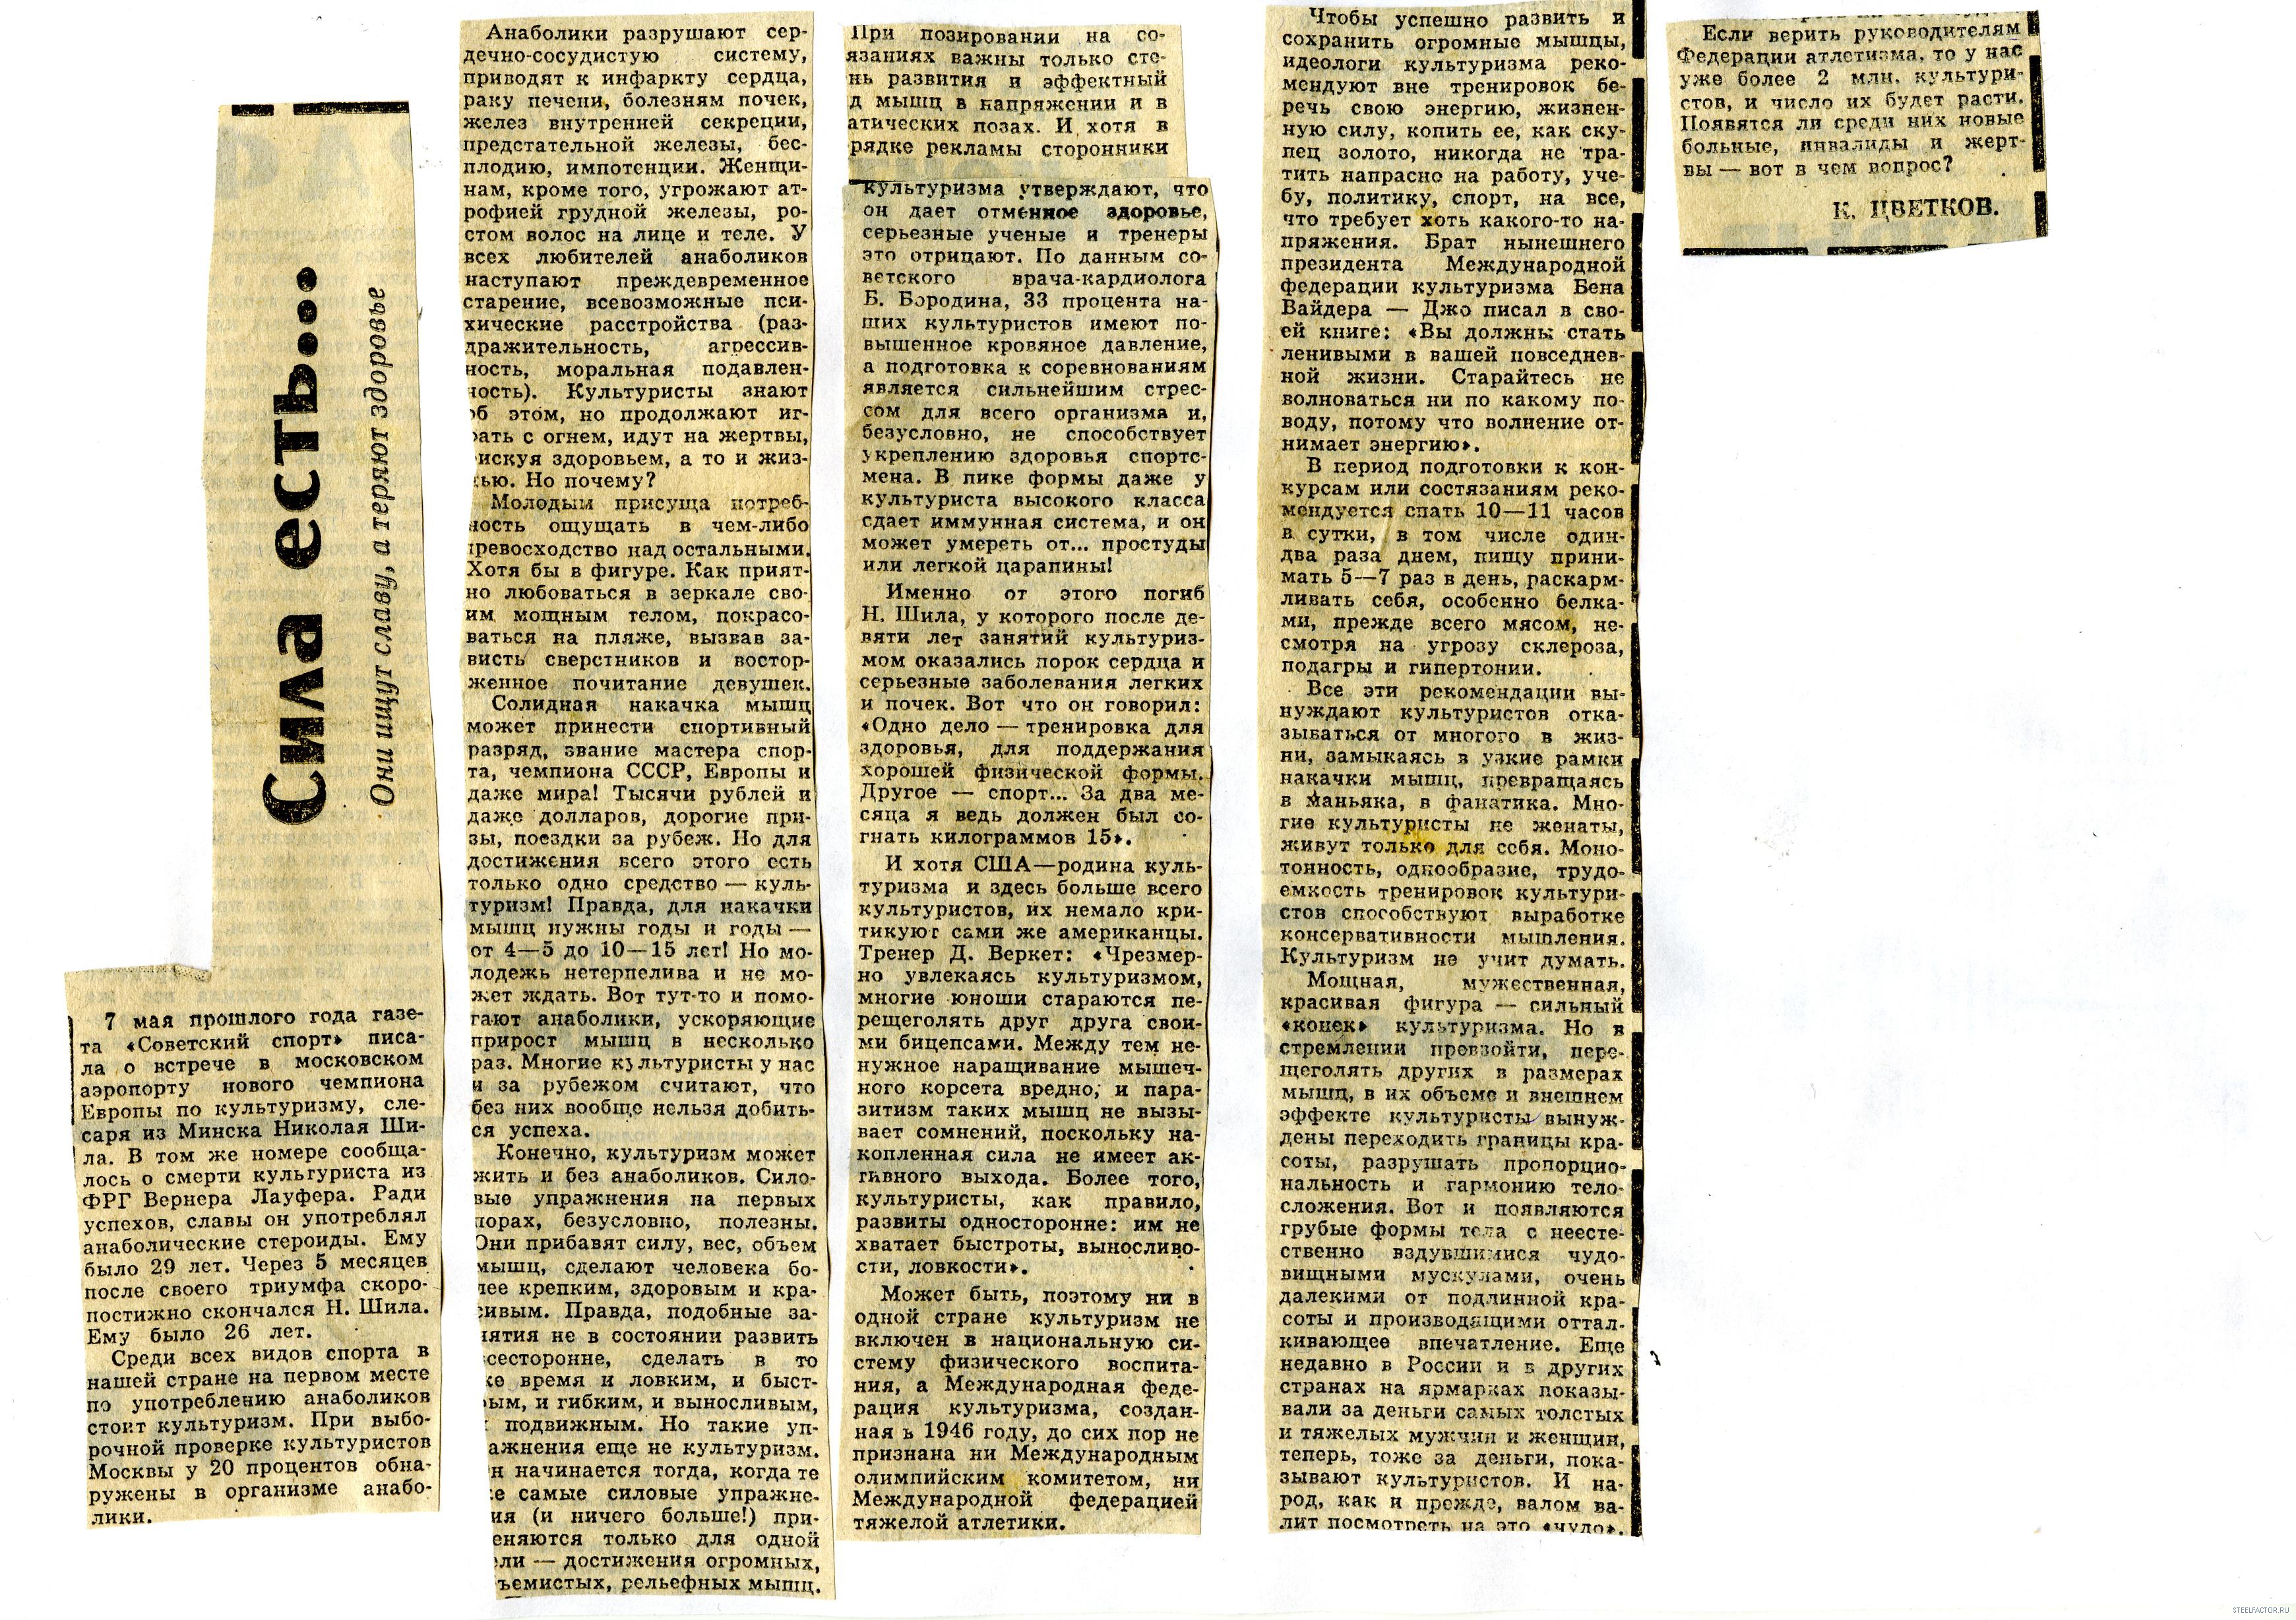 Сила есть...
Они ищут славу, а теряют здоровье
7 мая прошлого года газе-
та «Советский спорт» писа-
ла о встрече в московском
аэропорту нового чемпиона
Европы по культуризму, сле-
саря из Минска Николая Ши-
ла. В том же номере сообща-
лось о смерти культуриста из
ФРГ Вернера Лауфера. Ради
успехов, славы он употреблял
анаболические стероиды. Ему
было 29 лет. Через 5 месяцев
после своего триумфа скоро-
постижно скончался Н. Шила.
Ему было 26 лет.
Среди всех видов спорта в
нашей стране на первом месте
по употреблению анаболиков
стоит культуризм. При выбо-
рочной проверке культуристов
Москвы у 20 процентов обна-
ружены в организме анабо-
лики.
Анаболики разрушают сер-
дечно-сосудистую систему,
приводят к инфаркту сердца,
раку печени, болезням почек,
желез внутренней секреции,
предстательной железы, бес-
плодию, импотенции. Женщи-
нам, кроме того, угрожают ат-
рофией грудной железы, ро-
стом волос на лице и теле. У
всех любителей анаболиков
наступают преждевременное
старение, всевозможные пси-
хические расстройства (раз-
дражительность, агрессив-
ность, моральная подавлен-
ность). Культуристы знают
об этом, но продолжают иг-
рать с огнем, идут на жертвы,
рискуя здоровьем, а то и жиз-
нью. Но почему?
Молодым присуща потреб-
ность ощущать в чем-либо
превосходство над остальными.
Хотя бы в фигуре. Как прият-
но любоваться в зеркале сво-
им мощным телом, покрасо-
ваться на пляже, вызвав за-
висть сверстников и востор-
женное почитание девушек.
Солидная накачка мышц
может принести спортивный
разряд, звание мастера спор-
та, чемпиона СССР, Европы и
даже мира! Тысячи рублей и
даже долларов, дорогие при-
зы, поездки за рубеж. Но для
достижения всего этого есть
только одно средство — куль-
туризм! Правда, для накачки
мышц нужны годы и годы —
от 4—5 до 10—15 лет! Но мо-
лодежь нетерпелива и не мо-
жет ждать. Вот тут-то и помо-
гают анаболики, ускоряющие
прирост мышц в несколько
раз. Многие культуристы у нас
и за рубежом считают, что
без них вообще нельзя добить-
ся успеха.
Конечно, культуризм может
жить и без анаболиков. Сило-
вые упражнения на первых
порах, безусловно, полезны.
Они прибавят силу, вес, объем
мышц, сделают человека бо-
лее крепким, здоровым и кра-
сивым. Правда, подобные за-
нятия не в состоянии развить
всесторонне, сделать в то
же время и ловким, и быст-
рым, и гибким, и выносливым,
и подвижным. Но такие уп-
ражнения еще не культуризм.
Он начинается тогда, когда те
же самые силовые упражне-
ния (и ничего больше!) при-
меняются только для одной
цели — достижения огромных,
объемистых, рельефных мышц.
При позировании на со-
язаниях важны только сте-
нь развития и эффектный
д мышц в напряжении и в
атических позах. И хотя в
рядке рекламы сторонники
культуризма утверждают, что
он дает отменное здоровье,
серьезные ученые и тренеры
это отрицают. По данным со-
ветского врача-кардиолога
Б. Бородина, 33 процента на-
ших культуристов имеют по-
вышенное кровяное давление,
а подготовка к соревнованиям
является сильнейшим стрес-
сом для всего организма и,
безусловно, не способствует
укреплению здоровья спортс-
мена. В пике формы даже у
культуриста высокого класса
сдает иммунная система, и он
может умереть от... простуды
или легкой царапины!
Именно от этого погиб
Н. Шила, у которого после де-
вяти лет занятий культуриз-
мом оказались порок сердца и
серьезные заболевания легких
и почек. Вот что он говорил:
«Одно дело — тренировка для
здоровья, для поддержания
хорошей физической формы.
Другое — спорт... За два ме-
сяца я ведь должен был со-
гнать килограммов 15».
И хотя США—родина куль-
туризма и здесь больше всего
культуристов, их немало кри-
тикуют сами же американцы.
Тренер Д. Веркет: «Чрезмер-
но увлекаясь культуризмом,
многие юноши стараются пе-
рещеголять друг друга свои-
ми бицепсами. Между тем не-
нужное наращивание мышеч-
ного корсета вредно, и пара-
зитизм таких мышц не вызы-
вает сомнений, поскольку на-
копленная сила не имеет ак-
тивного выхода. Более того,
культуристы, как правило,
развиты односторонне: им не
хватает быстроты, выносливо-
сти, ловкости».
Может быть, поэтому ни в
одной стране культуризм не
включен в национальную си-
стему физического воспита-
ния, а Международная феде-
рация культуризма, создан-
ная в 1946 году, до сих пор не
признана ни Международным
олимпийским комитетом, ни
Международной федерацией
тяжелой атлетики.
Чтобы успешно развить и
сохранить огромные мышцы,
идеологи культуризма реко-
мендуют вне тренировок бе-
речь свою энергию, жизнен-
ную силу, копить ее, как ску-
пец золото, никогда не тра-
тить напрасно на работу, уче-
бу, политику, спорт, на все,
что требует хоть какого-то на-
пряжения. Брат нынешнего
президента Международной
федерации культуризма Бена
Вайдера — Джо писал в сво-
ей книге: «Вы должны стать
ленивыми в вашей повседнев-
ной жизни. Старайтесь не
волноваться ни по какому по-
воду, потому что волнение от-
нимает энергию».
В период подготовки к кон-
курсам или состязаниям реко-
мендуется спать 10—11 часов
в сутки, в том числе один-
два раза днем, пищу прини-
мать 5—7 раз в день, раскарм-
ливать себя, особенно белка-
ми, прежде всего мясом, не-
смотря на угрозу склероза,
подагры и гипертонии.
Все эти рекомендации вы-
нуждают культуристов отка-
зываться от многого в жиз-
ни, замыкаясь в узкие рамки
накачки мышц, превращаясь
в маньяка, в фанатика. Мно-
гие культуристы не женаты,
живут только для себя. Моно-
тонность, однообразие, трудо-
емкость тренировок культури-
стов способствуют выработке
консервативности мышления.
Культуризм не учит думать.
Мощная, мужественная,
красивая фигура — сильный
«конек» культуризма. Но в
стремлении превзойти, пере-
щеголять других в размерах
мышц, в их объеме и внешнем
эффекте культуристы вынуж-
дены переходить границы кра-
соты, разрушать пропорцио-
нальность и гармонию тело-
сложения. Вот и появляются
грубые формы тела с неесте-
ственно вздувшимися чудо-
вищными мускулами, очень
далекими от подлинной кра-
соты и производящими оттал-
кивающее впечатление. Еще
недавно в России и в других
странах на ярмарках показы-
вали за деньги самых толстых
и тяжелых мужчин и женщин,
теперь, тоже за деньги, пока-
зывают культуристов. И на-
род, как и прежде, валом ва-
лит посмотреть на это «чудо».
Если верить руководителям
Федерации атлетизма, то у нас
уже более 2 млн. культури-
стов, и число их будет расти.
Появятся ли среди них новые
больные, инвалиды и жерт-
вы — вот в чем вопрос?
К. ЦВЕТКОВ.
STEELFACTOR.RU